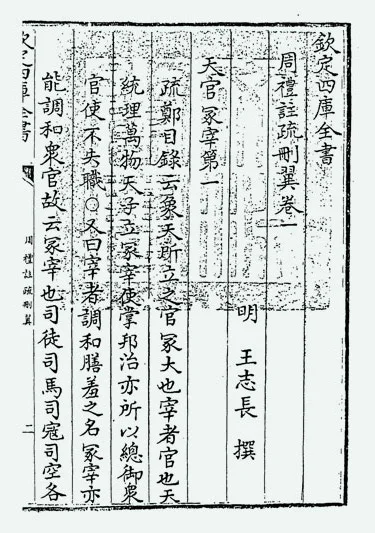 欽定四庫全書
周禮註疏刪翼卷一
明　王志長　撰
天官冢宰第一
疏鄭目錄云象天所立之官冢大也宰者官也天
統理萬物天子立冢宰使掌邦治亦所以總御衆
官使不失職〇又曰宰者調和膳羞之名冢宰亦
能調和衆官故云冢宰也司徒司馬司寇司空各
欽定四庫全書
周禮註疏刪翼
二